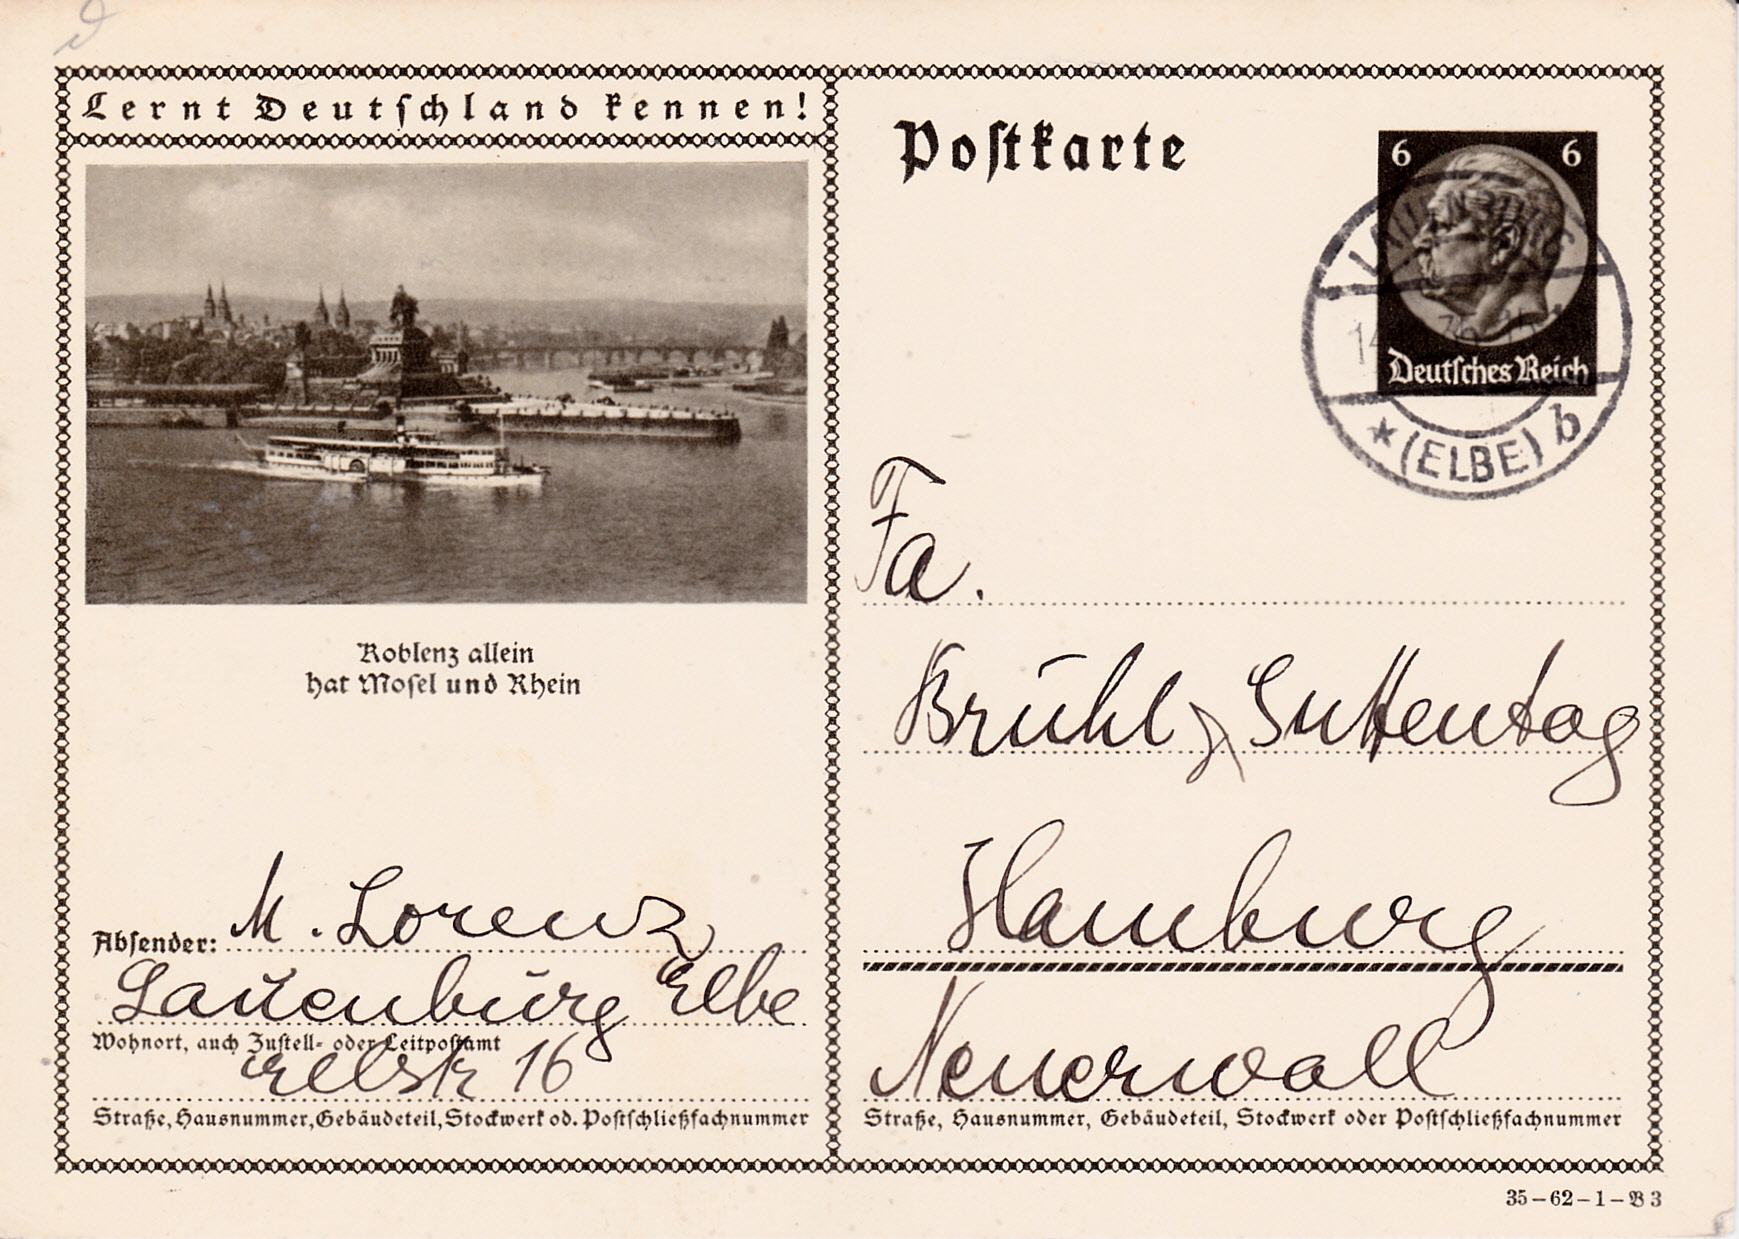 Lernt Deutschland kennen!
Koblenz allein
hat Mosel und Rhein
Absender: M. Lorenz
Lauenburg Elbe
Wohnort, auch Zustell- oder Leitpostamt
Elbstr 16
Straße, Hausnummer, Gebäudeteil, Stockwerk od. Postschließfachnummer
Postkarte
6 6
Deutsches Reich
LAUENBURG
(ELBE) b
Fa.
Brühl & Guttentag
Hamburg
Neuerwall
Straße, Hausnummer, Gebäudeteil, Stockwerk oder Postschließfachnummer
35-62-1-B 3